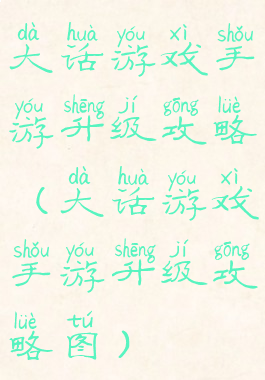 dà huà yóu xì shǒu
大话游戏手
yóu shēng jí gōng lüè
游升级攻略
dà huà yóu xì
（大话游戏
shǒu yóu shēng jí gōng
手游升级攻
lüè tú
略图）